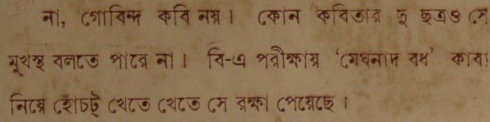 না, গোবিন্দ কবি নয়। কোন কবিতার দু ছত্রও সে
মুখস্থ বলতে পারে না। বি-এ পরীক্ষায় ‘মেঘনাদ বধ’ কাব্য
নিয়ে হোঁচট খেতে খেতে সে রক্ষা পেয়েছে।